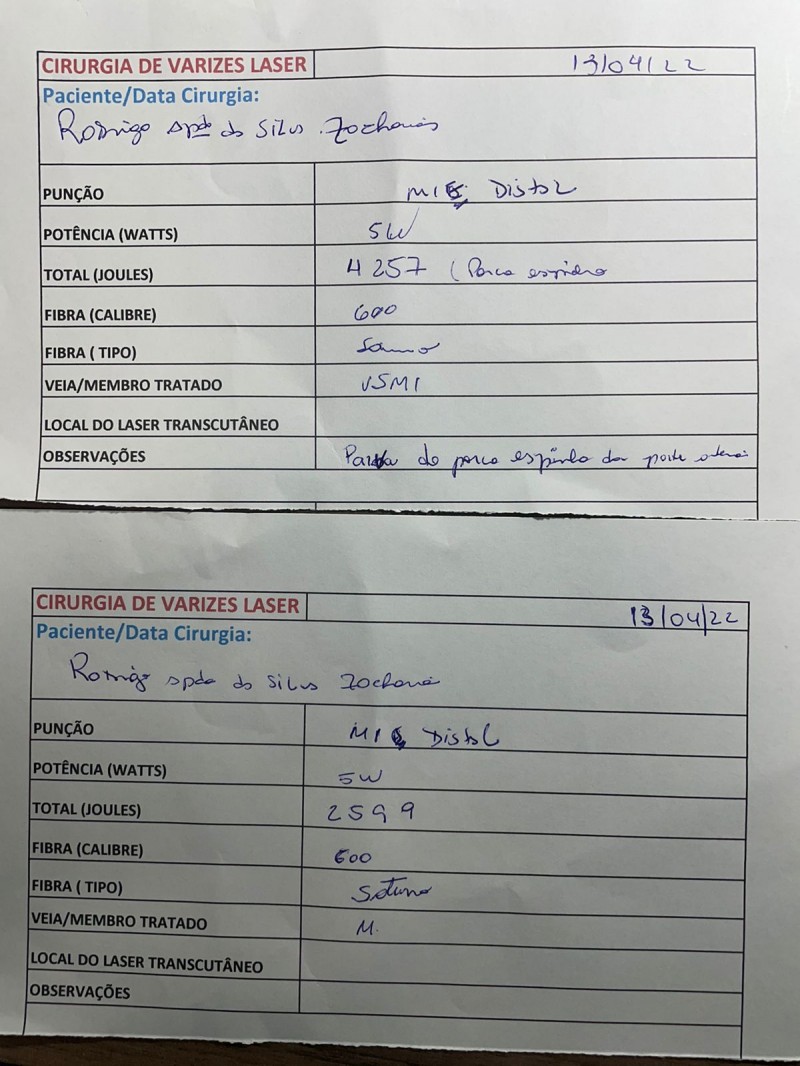 CIRURGIA DE VARIZES LASER 13/04/22
Paciente/Data Cirurgia:
Rodrigo da Silva
PUNÇÃO MIE Distal
POTÊNCIA (WATTS) 5W
TOTAL (JOULES) 4257 (Porco espinho
FIBRA (CALIBRE) 600
FIBRA ( TIPO)
VEIA/MEMBRO TRATADO VSMI
LOCAL DO LASER TRANSCUTÂNEO
OBSERVAÇÕES do porco espinho da parte
CIRURGIA DE VARIZES LASER 13/04/22
Paciente/Data Cirurgia:
Rodrigo da Silva
PUNÇÃO Distal
POTÊNCIA (WATTS) 5W
TOTAL (JOULES) 2599
FIBRA (CALIBRE) 600
FIBRA ( TIPO)
VEIA/MEMBRO TRATADO M.
LOCAL DO LASER TRANSCUTÂNEO
OBSERVAÇÕES